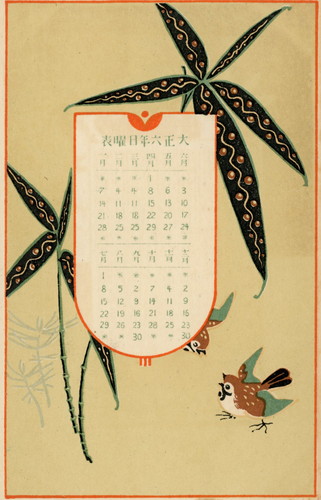 大正六年日曜表
一月 二月 三月 四月 五月 六月
1
7 4 4 8 6 3
14 11 11 15 13 10
21 18 18 22 20 17
28 25 25 29 27 24
七月 八月 九月 十月 十一月 十二月
1 5 2 7 4 2
8 12 9 14 11 9
15 19 16 21 18 16
22 26 23 28 25 23
29 30 30